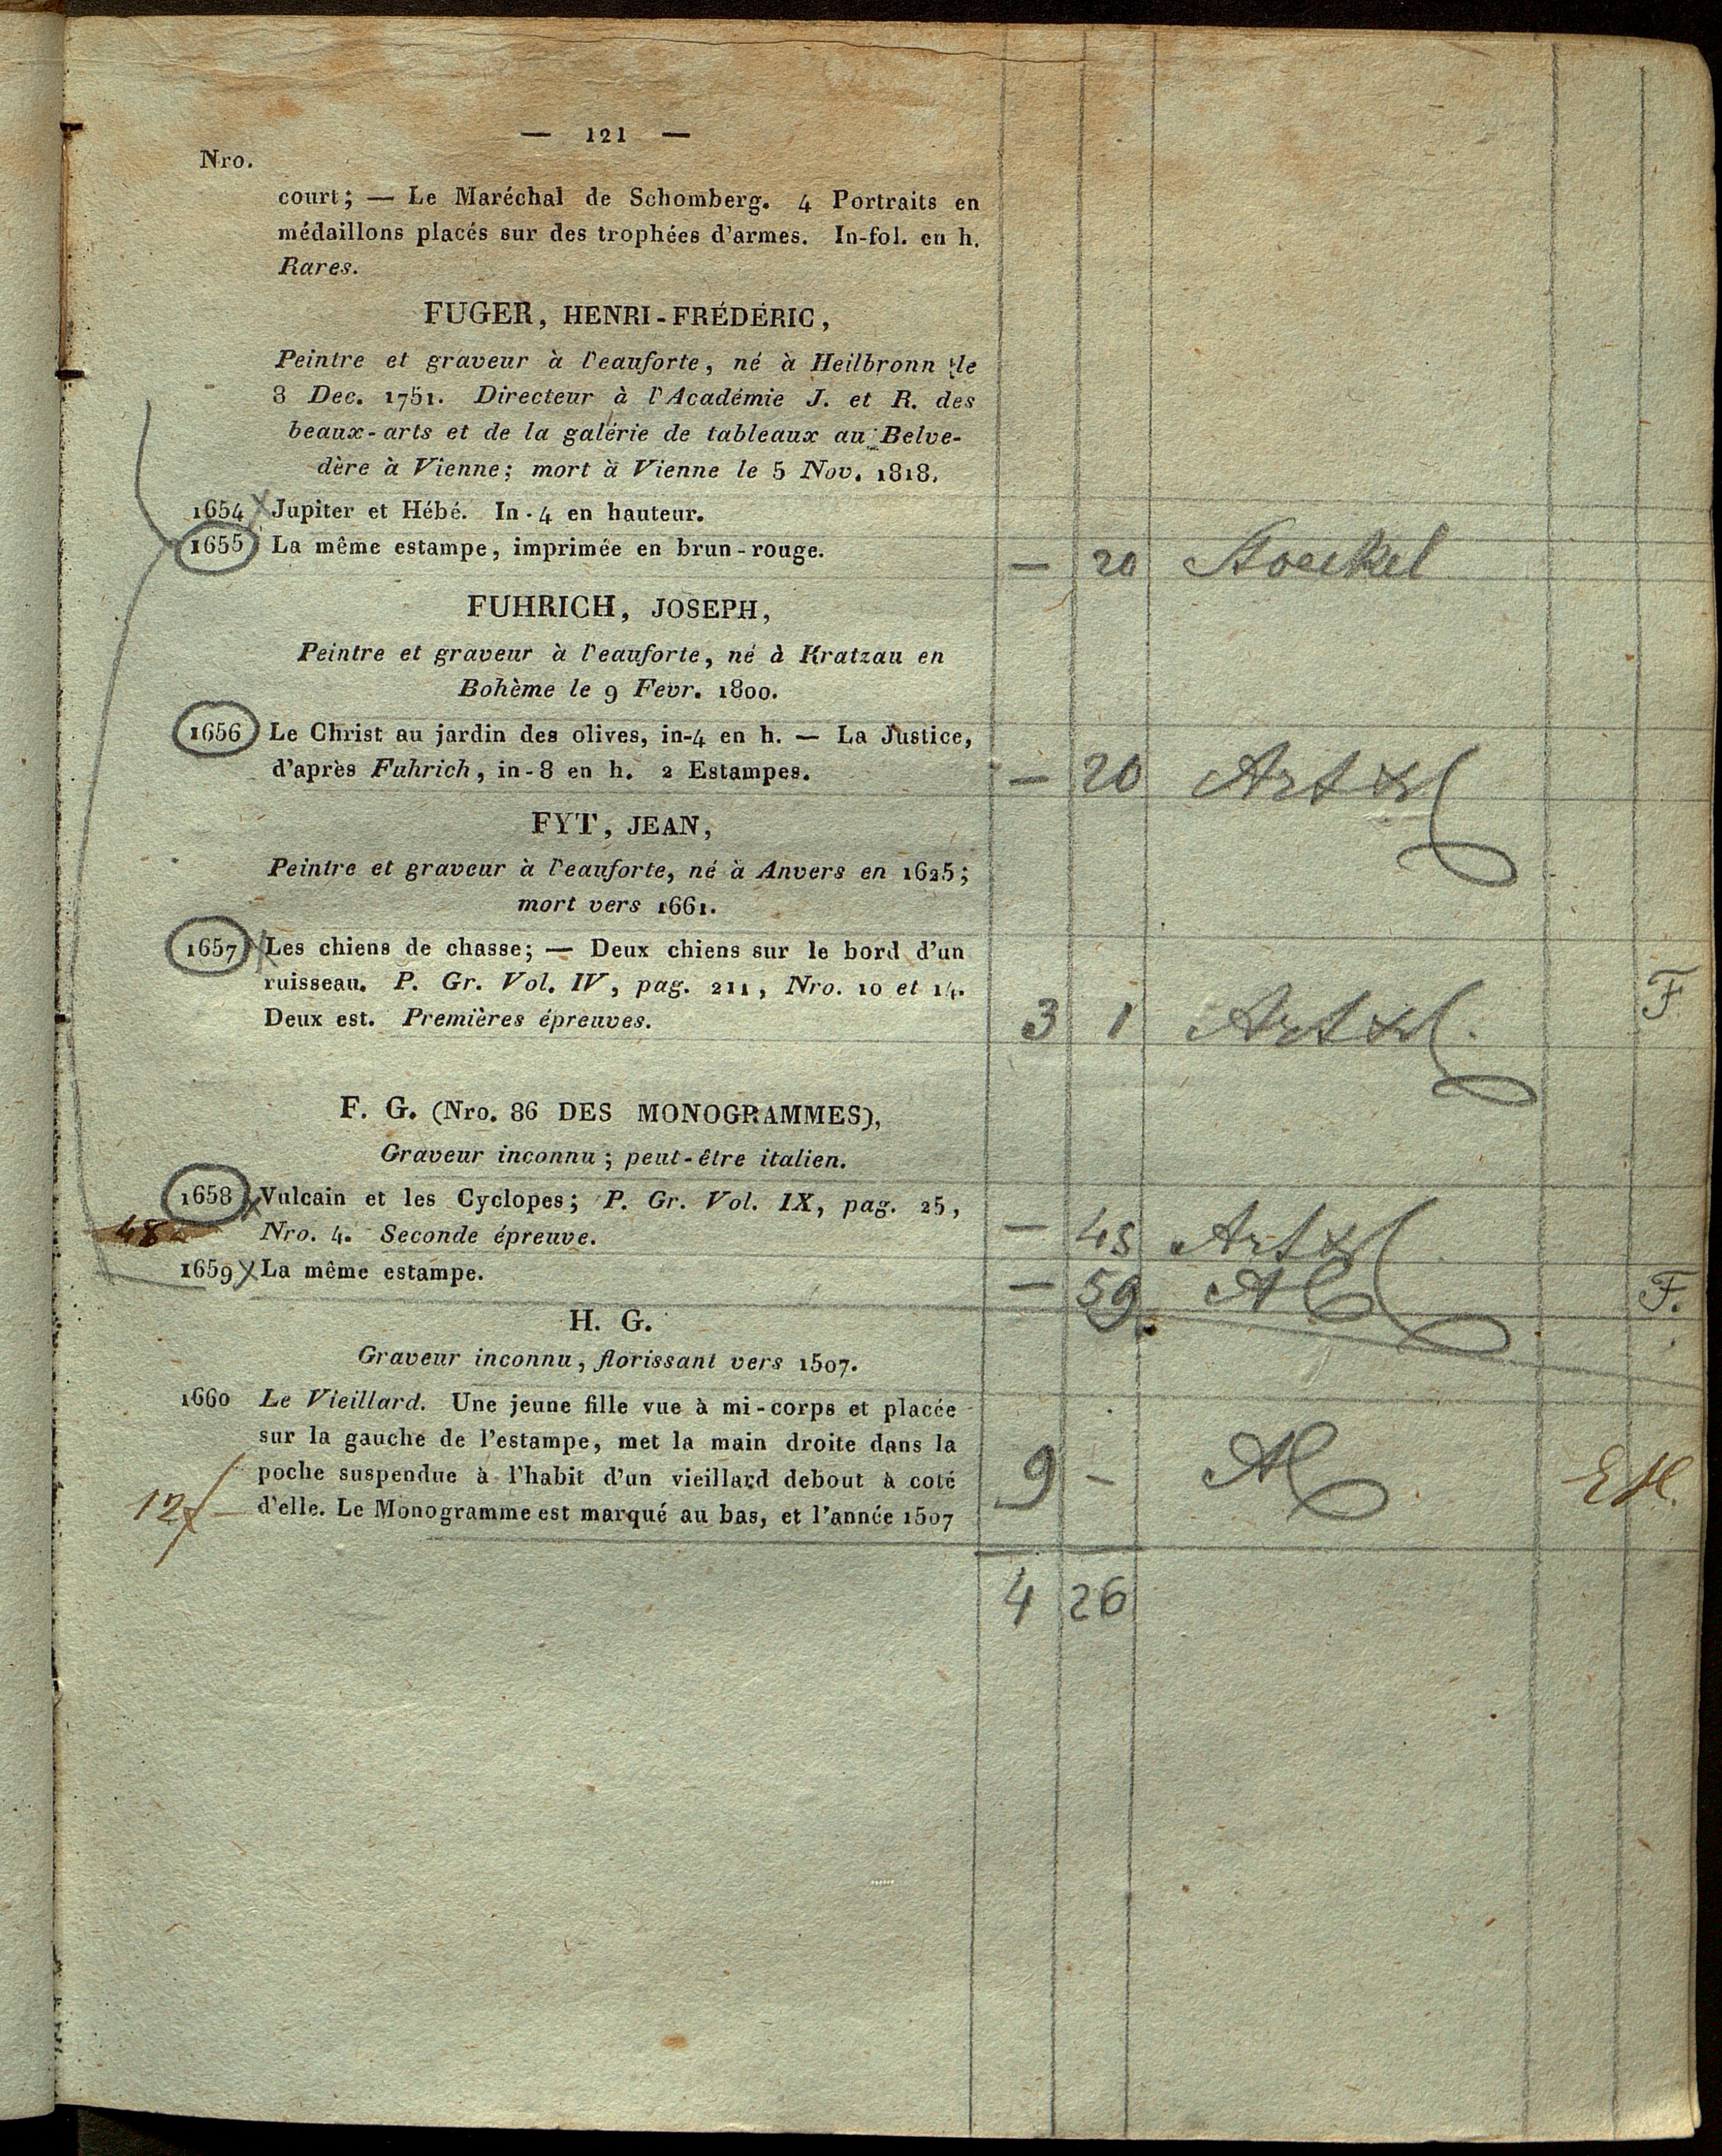 — 121 —
Nro.
court; — Le Maréchal de Schomberg. 4 Portraits en
médaillons placés sur des trophées d'armes. In-fol. en h.
Rares.
FUGER, HENRI-FRÉDÉRIC,
Peintre et graveur à l'eauforte, né à Heilbronn le
8 Dec. 1751. Directeur à l'Académie J. et R. des
beaux-arts et de la galérie de tableaux au Belve-
dère à Vienne; mort à Vienne le 5 Nov. 1818.
1654 X Jupiter et Hébé. In-4 en hauteur.
1655 La même estampe, imprimée en brun-rouge.
— 20
FUHRICH, JOSEPH,
Peintre et graveur à l'eauforte, né à Kratzau en
Bohème le 9 Fevr. 1800.
1656 Le Christ au jardin des olives, in-4 en h. — La Justice,
d'après Fuhrich, in-8 en h. 2 Estampes. — 20 Artxl
FYT, JEAN,
Peintre et graveur à l'eauforte, né à Anvers en 1625;
mort vers 1661.
1657 X Les chiens de chasse; — Deux chiens sur le bord d'un
ruisseau. P. Gr. Vol. IV, pag. 211, Nro. 10 et 14. F
Deux est. Premières épreuves. 3 1 Artxl.
F. G. (Nro. 86 DES MONOGRAMMES),
Graveur inconnu; peut-être italien.
1658 X Vulcain et les Cyclopes; P. Gr. Vol. IX, pag. 25,
48 Nro. 4. Seconde épreuve. — 45 Artxl
1659 X La même estampe. — 59 F.
H. G.
Graveur inconnu, florissant vers 1507.
1660 Le Vieillard. Une jeune fille vue à mi-corps et placée
sur la gauche de l'estampe, met la main droite dans la
poche suspendue à l'habit d'un vieillard debout à coté 9 —
12f — d'elle. Le Monogramme est marqué au bas, et l'année 1507
4 26